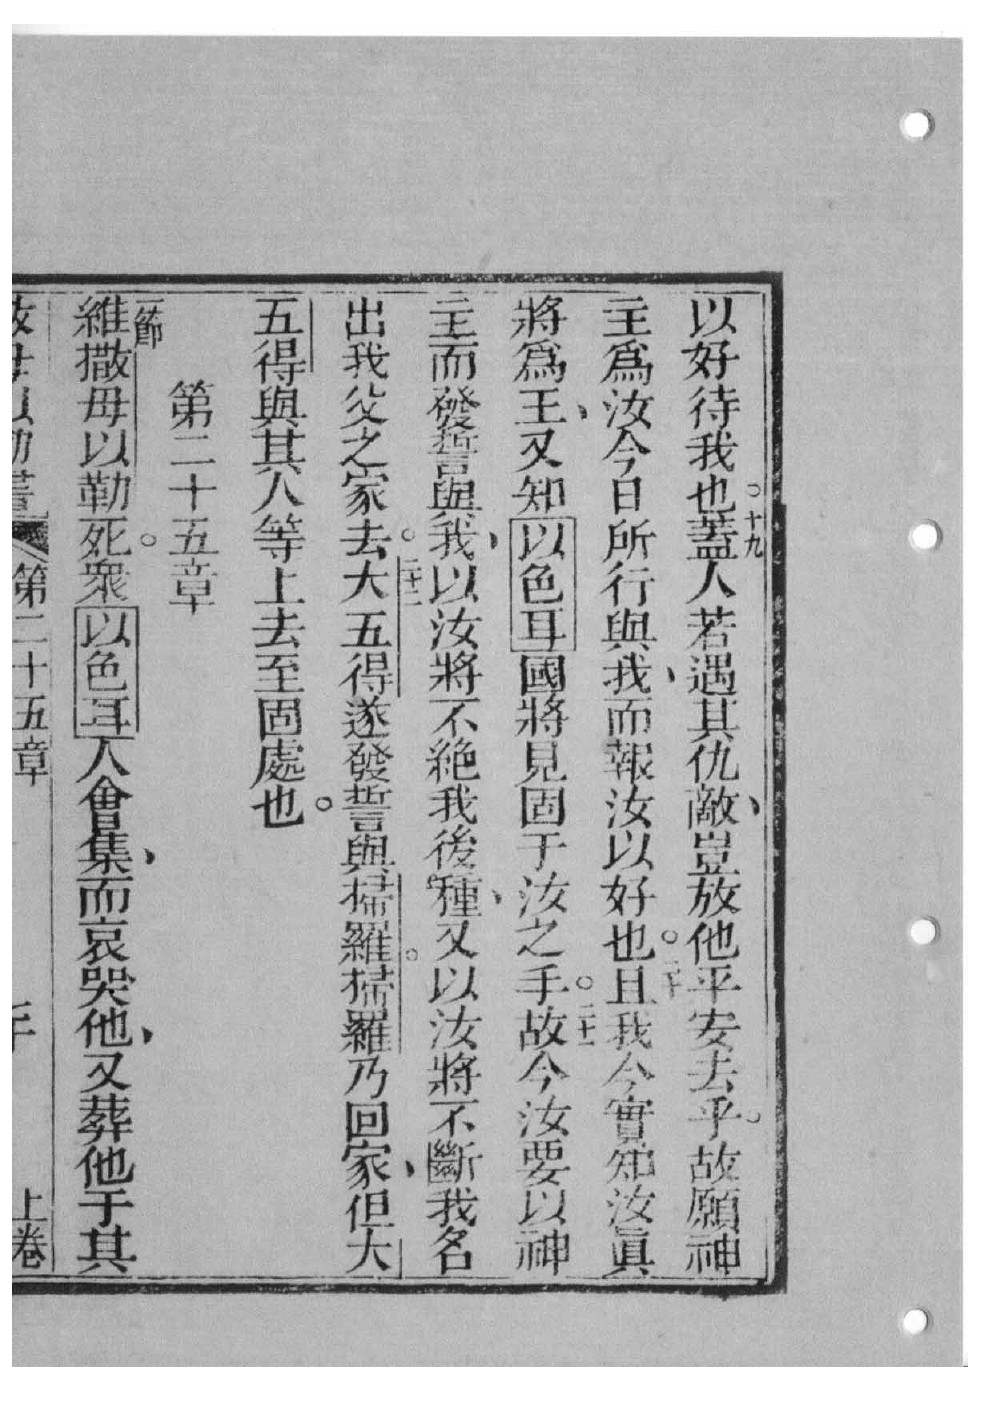 以好待我也。十九蓋人若遇其仇敵、豈放他平安去乎。故願神
主爲汝今日所行與我、而報汝以好也。二十且我今實知汝眞
將爲王、又知以色耳國將見固于汝之手。二十一故今汝要以神
主而發誓與我、以汝將不絶我後種、又以汝將不斷我名
出我父之家去。二十二大五得遂發誓與掃羅。掃羅乃回家、但大
五得與其人等上去至固處也。
第二十五章
一節維撒母以勒死。衆以色耳人會集、而哀哭他、又葬他于其
撒母以勒書 第二十五章 上卷